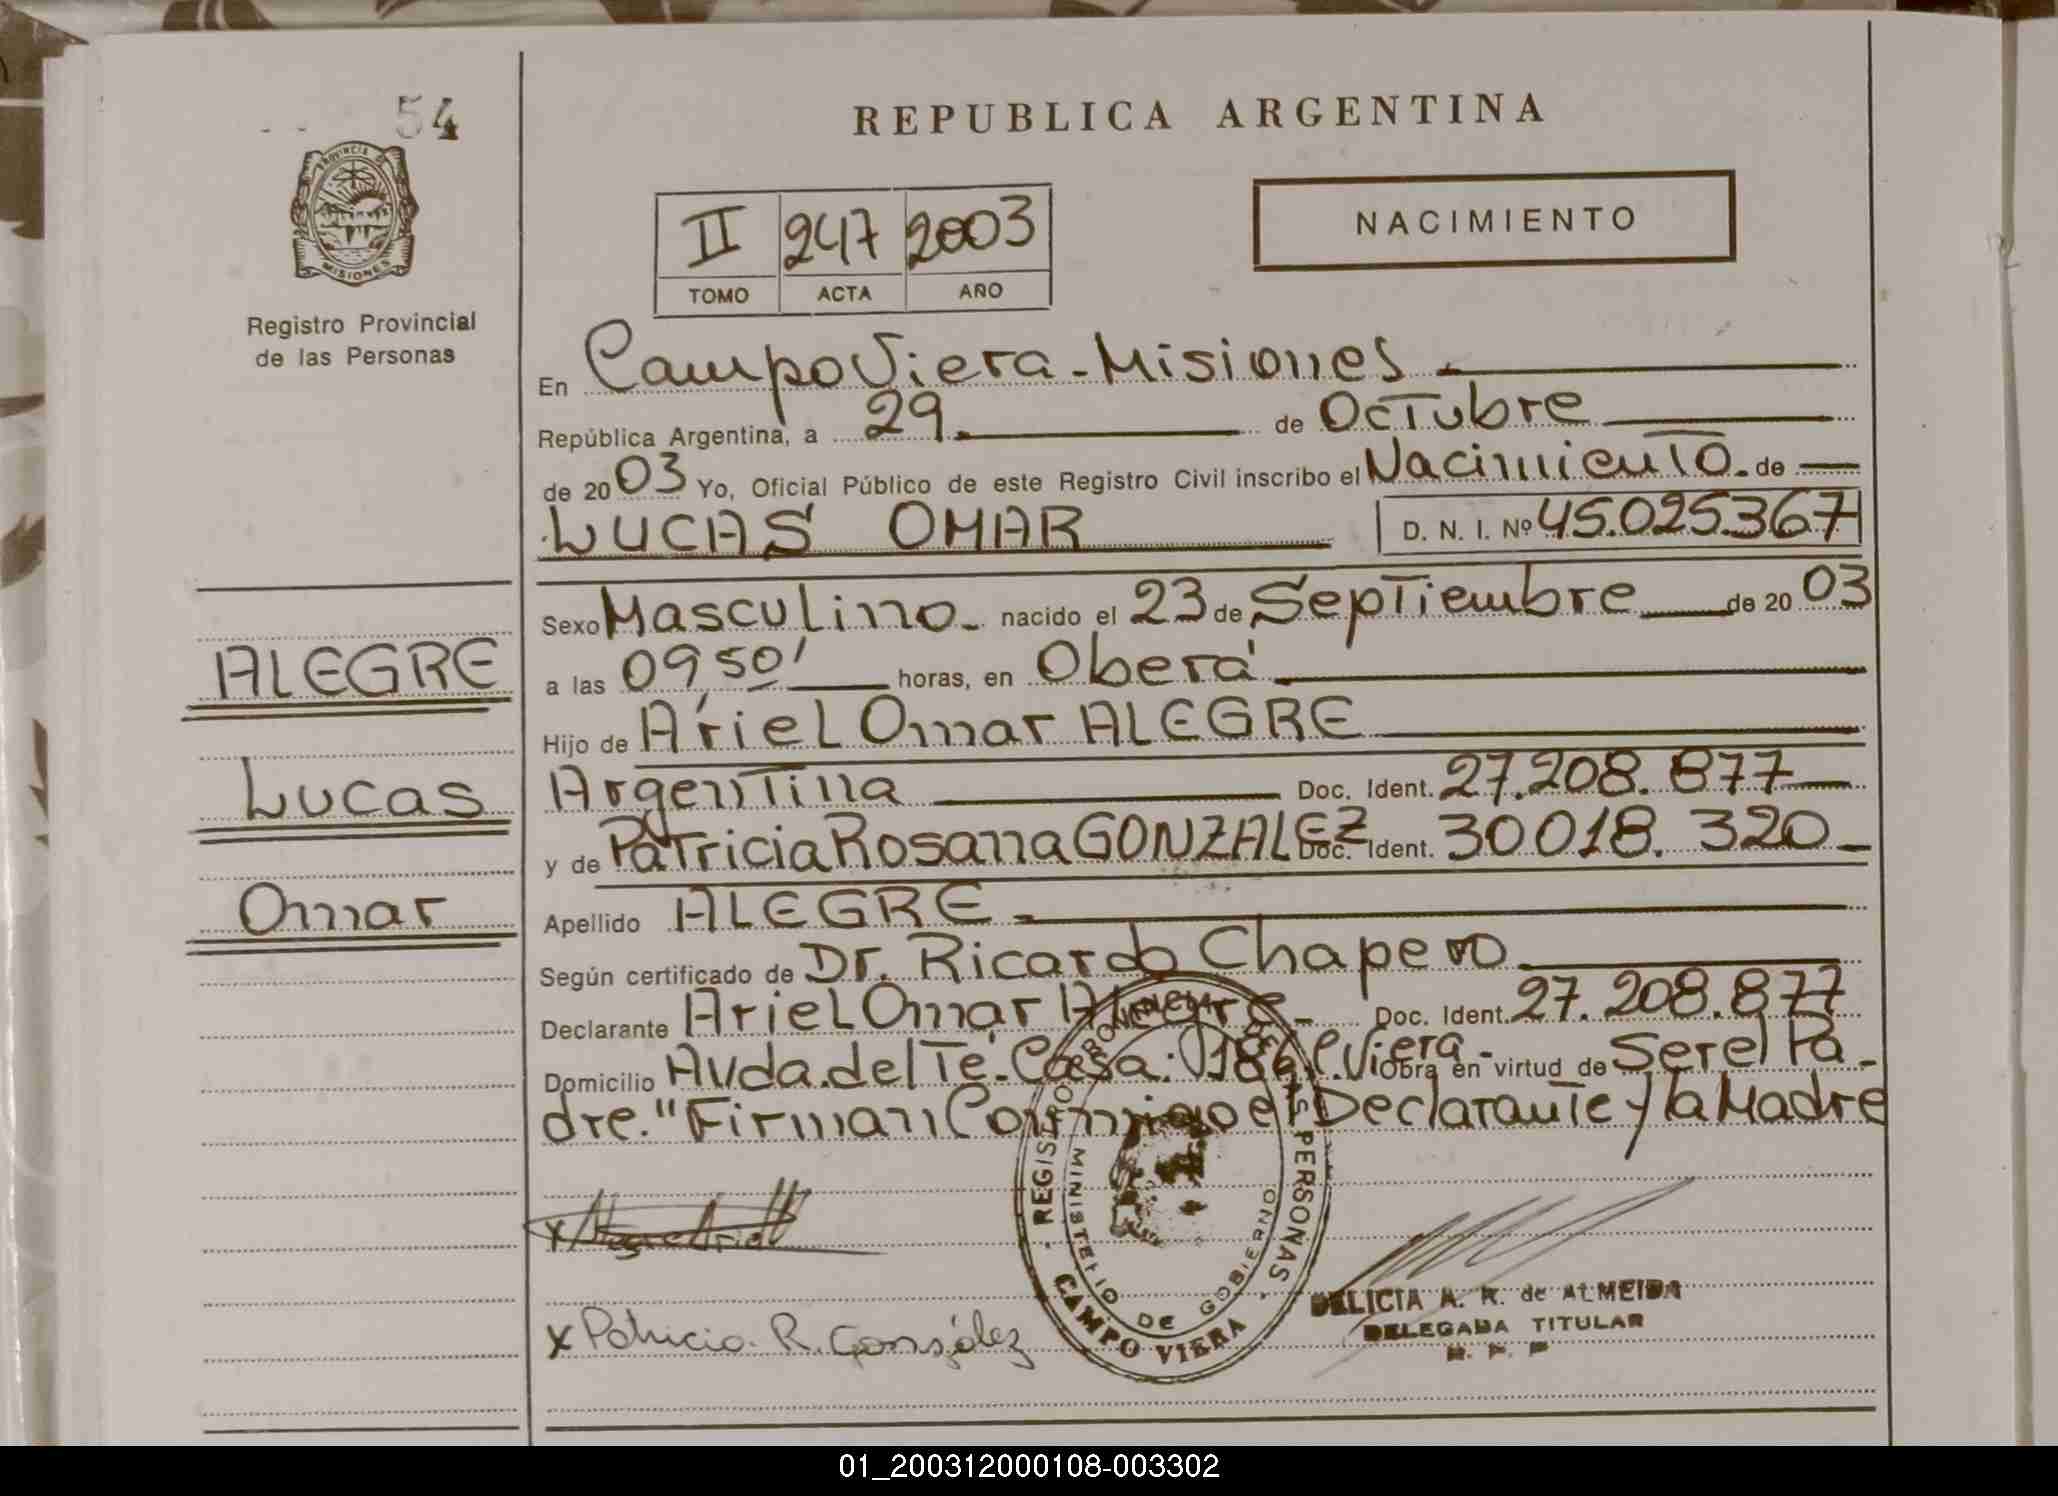 54
PROVINCIA DE
MISIONES
Registro Provincial
de las Personas
ALEGRE
Lucas
Omar
REPUBLICA ARGENTINA
II 247 2003
TOMO ACTA AÑO
NACIMIENTO
En Campo Viera - Misiones
República Argentina, a 29 de Octubre
de 2003 Yo, Oficial Público de este Registro Civil inscribo el Nacimiento. de
LUCAS OMAR D. N. I. Nº 45.025.367
Sexo Masculino - nacido el 23 de Septiembre de 20 03
a las 09 50' horas, en Oberá
Hijo de Ariel Omar ALEGRE
Argentina Doc. Ident. 27.208.877
y de Patricia Rosana GONZALEZ Doc. Ident. 30018.320
Apellido ALEGRE
Según certificado de Dr. Ricardo
Declarante Ariel Omar Alegre - Doc. Ident. 27.208.877
Domicilio Avda. del Té - Casa: 186 C. Viera - Obra en virtud de Ser el Pa-
dre. "Firman Conmigo el Declarante y la Madre
x Alegre Ariel
x Patricia R. González
REGISTRO PROVINCIAL DE LAS PERSONAS
MINISTERIO DE GOBIERNO
CAMPO VIERA
DELICIA A. R. de ALMEIDA
DELEGADA TITULAR
01_200312000108-003302